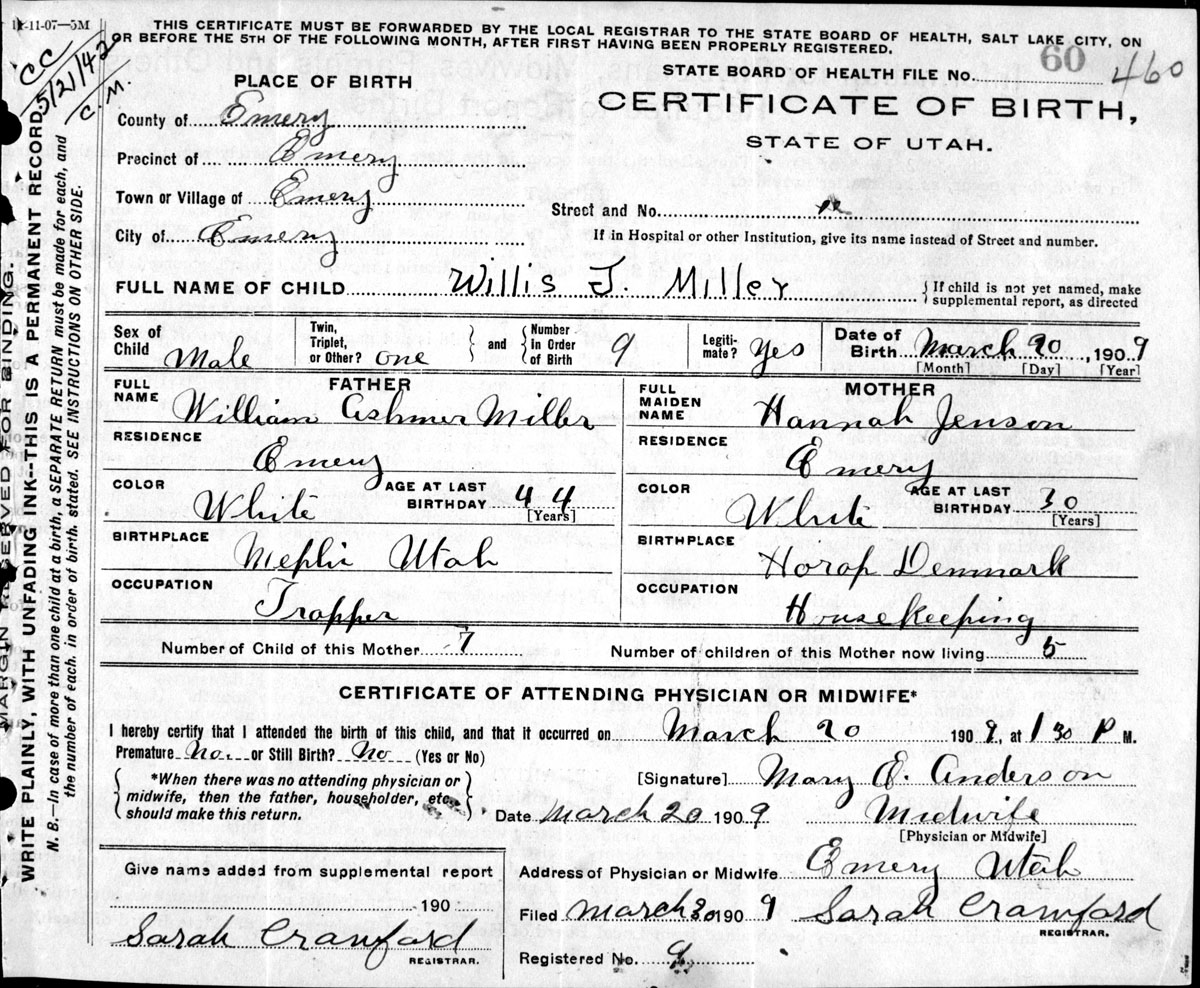 11-07—5M
THIS CERTIFICATE MUST BE FORWARDED BY THE LOCAL REGISTRAR TO THE STATE BOARD OF HEALTH, SALT LAKE CITY, ON
OR BEFORE THE 5TH OF THE FOLLOWING MONTH, AFTER FIRST HAVING BEEN PROPERLY REGISTERED.
CC 5/21/42
C. M.
STATE BOARD OF HEALTH FILE No. 60 460
PLACE OF BIRTH
CERTIFICATE OF BIRTH,
STATE OF UTAH.
County of Emery
Precinct of Emery
Town or Village of Emery
Street and No.
City of Emery
If in Hospital or other Institution, give its name instead of Street and number.
FULL NAME OF CHILD Willis J. Miller { If child is not yet named, make
supplemental report, as directed
Sex of Child Male
Twin, Triplet, or Other? one } and { Number in Order of Birth 9
Legiti-mate? Yes
Date of Birth March 20, 1909
[Month] [Day] [Year]
FATHER
FULL NAME William Ashmer Miller
RESIDENCE
Emery
COLOR White AGE AT LAST BIRTHDAY 44 [Years]
BIRTHPLACE
Nephi Utah
OCCUPATION
Trapper
MOTHER
FULL MAIDEN NAME Hannah Jenson
RESIDENCE
Emery
COLOR White AGE AT LAST BIRTHDAY 30 [Years]
BIRTHPLACE
Denmark
OCCUPATION
Housekeeping
Number of Child of this Mother 7
Number of children of this Mother now living 5
CERTIFICATE OF ATTENDING PHYSICIAN OR MIDWIFE*
I hereby certify that I attended the birth of this child, and that it occurred on March 20 1909, at 1 30 P M.
Premature No. or Still Birth? No (Yes or No)
{ *When there was no attending physician or
midwife, then the father, householder, etc.,
should make this return. }
[Signature] Mary E. Anderson
Date March 20 1909 Midwife
[Physician or Midwife]
Give name added from supplemental report
190
Sarah Crawford
REGISTRAR.
Address of Physician or Midwife Emery Utah
Filed March 30 1909 Sarah Crawford
REGISTRAR.
Registered No. 9
MARGIN RESERVED FOR BINDING.
WRITE PLAINLY, WITH UNFADING INK--THIS IS A PERMANENT RECORD.
N. B.—In case of more than one child at a birth, a SEPARATE RETURN must be made for each, and
the number of each, in order of birth, stated. SEE INSTRUCTIONS ON OTHER SIDE.